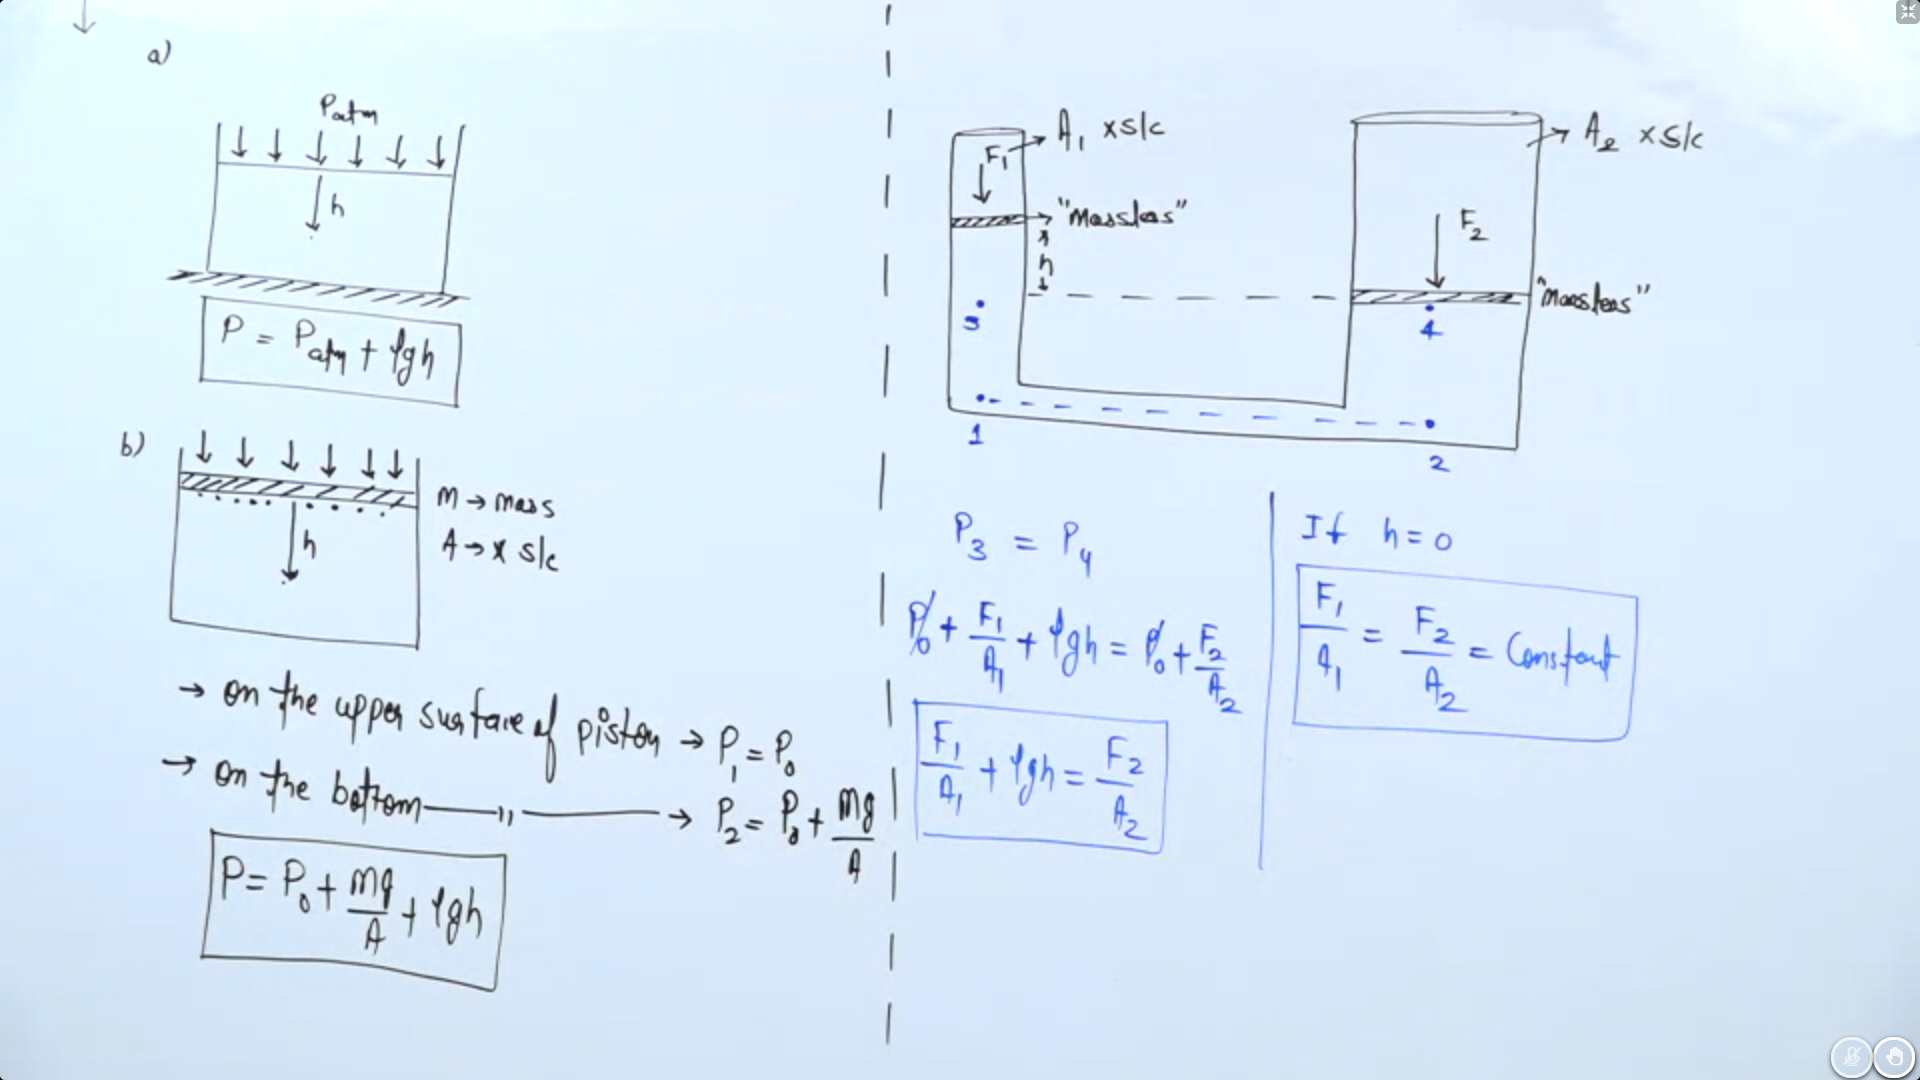 a)
Patm
h
P = Patm + ρgh
b)
M → mass
A → x s/c
h
→ on the upper surface of piston → P₁ = P₀
→ on the bottom —— 〃 —— → P₂ = P₀ + Mg/A
P = P₀ + Mg/A + ρgh
A₁ x s/c
A₂ x s/c
F₁
"Massless"
F₂
h
"massless"
3
4
1
2
P₃ = P₄
P₀ + F₁/A₁ + ρgh = P₀ + F₂/A₂
F₁/A₁ + ρgh = F₂/A₂
If h = 0
F₁/A₁ = F₂/A₂ = Constant